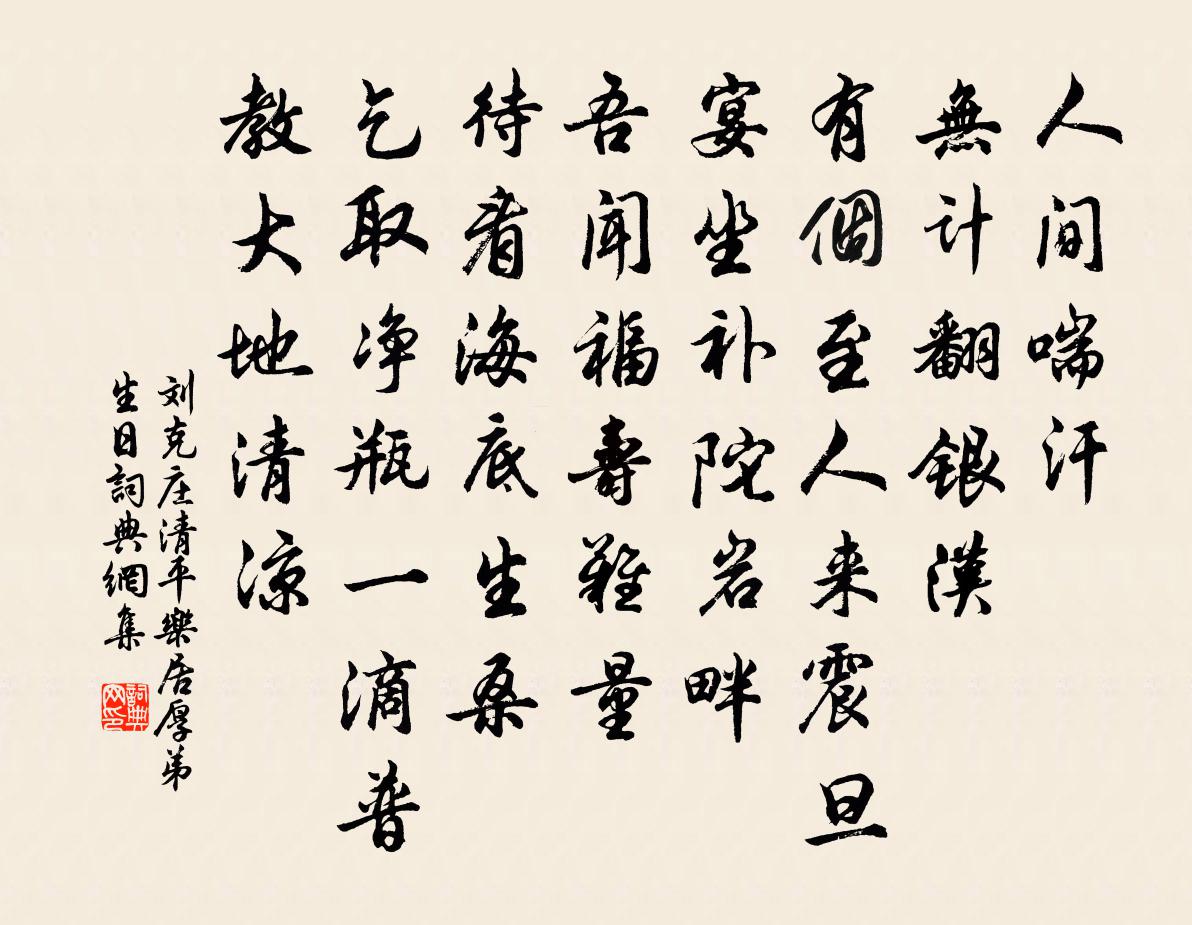 人間喘汗
無计翻銀漢
有個至人来震旦
宴坐补陀岩畔
吾聞福壽難量
待看海底生桑
乞取净瓶一滴普
教大地清凉
刘克庄清平樂居厚弟
生日詞典網集
詞典网印